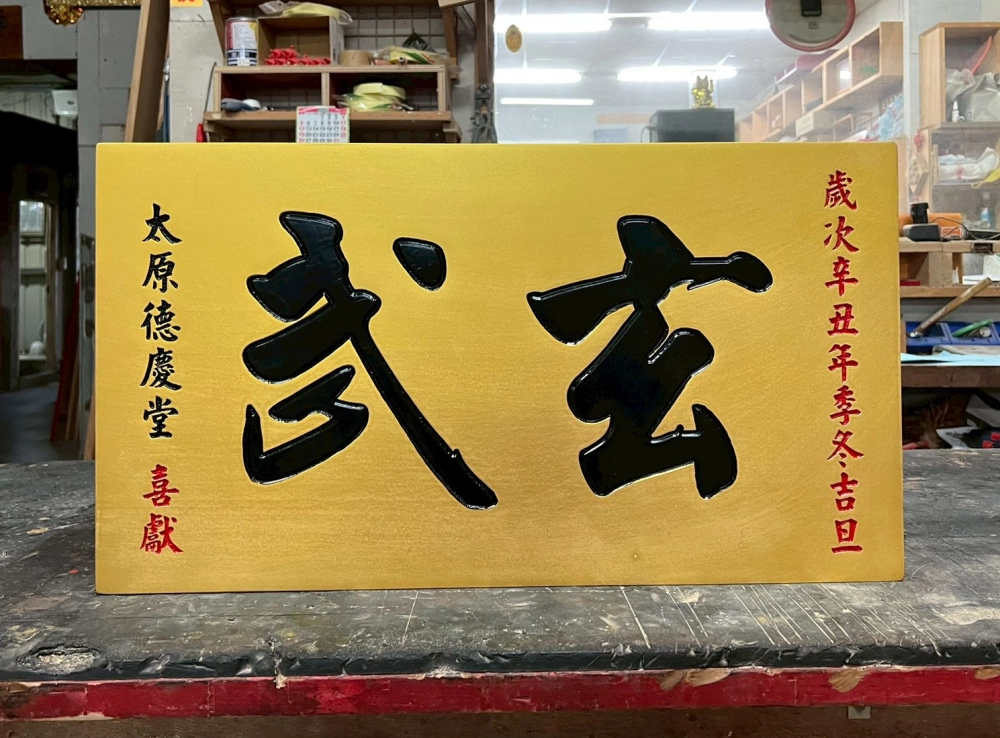 歲次辛丑年季冬吉旦
玄武
太原德慶堂 喜獻